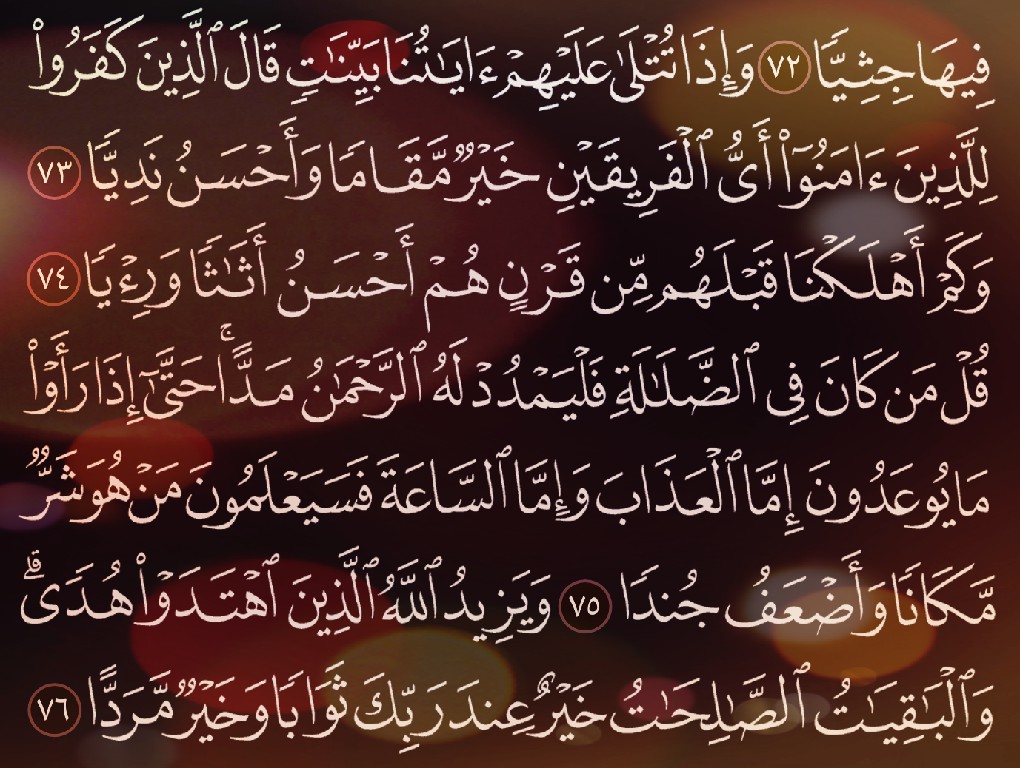 فِيهَا جِثِيًّا ٧٢ وَإِذَا تُتْلَىٰ عَلَيْهِمْ ءَايَـٰتُنَا بَيِّنَـٰتٍ قَالَ ٱلَّذِينَ كَفَرُوا۟
لِلَّذِينَ ءَامَنُوٓا۟ أَىُّ ٱلْفَرِيقَيْنِ خَيْرٌ مَّقَامًا وَأَحْسَنُ نَدِيًّا ٧٣
وَكَمْ أَهْلَكْنَا قَبْلَهُم مِّن قَرْنٍ هُمْ أَحْسَنُ أَثَـٰثًا وَرِءْيًا ٧٤
قُلْ مَن كَانَ فِى ٱلضَّلَـٰلَةِ فَلْيَمْدُدْ لَهُ ٱلرَّحْمَـٰنُ مَدًّا ۚ حَتَّىٰٓ إِذَا رَأَوْا۟
مَا يُوعَدُونَ إِمَّا ٱلْعَذَابَ وَإِمَّا ٱلسَّاعَةَ فَسَيَعْلَمُونَ مَنْ هُوَ شَرٌّ
مَّكَانًا وَأَضْعَفُ جُندًا ٧٥ وَيَزِيدُ ٱللَّهُ ٱلَّذِينَ ٱهْتَدَوْا۟ هُدًى ۗ
وَٱلْبَـٰقِيَـٰتُ ٱلصَّـٰلِحَـٰتُ خَيْرٌ عِندَ رَبِّكَ ثَوَابًا وَخَيْرٌ مَّرَدًّا ٧٦